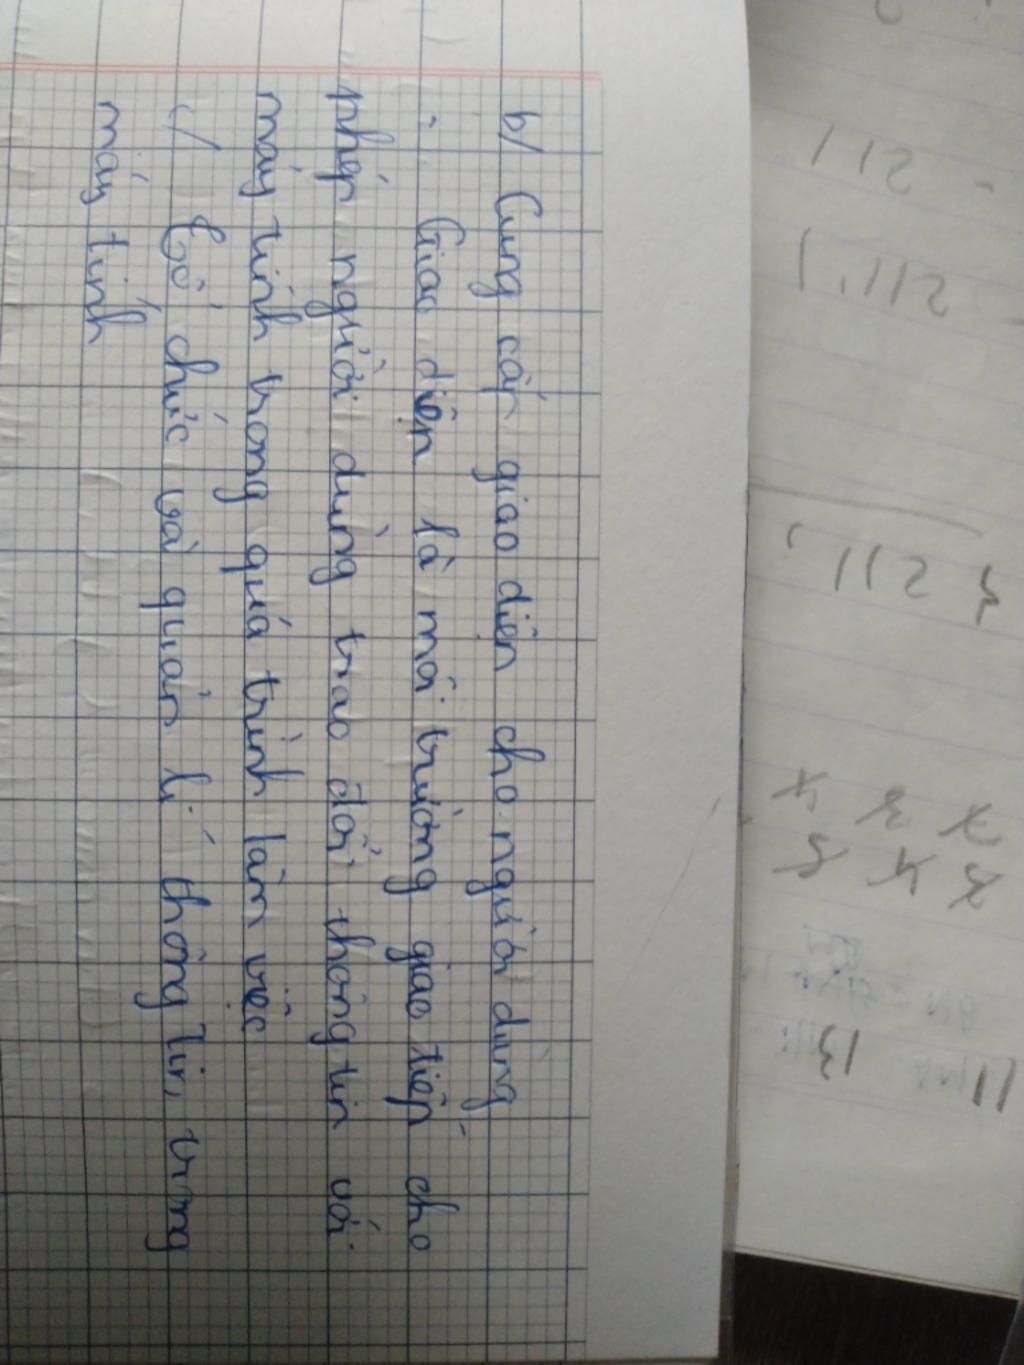 b/ Cung cấp giao diện cho người dùng
- Giao diện là môi trường giao tiếp cho
phép người dùng trao đổi thông tin với
máy tính trong quá trình làm việc
c/ Tổ chức và quản lí thông tin trong
máy tính